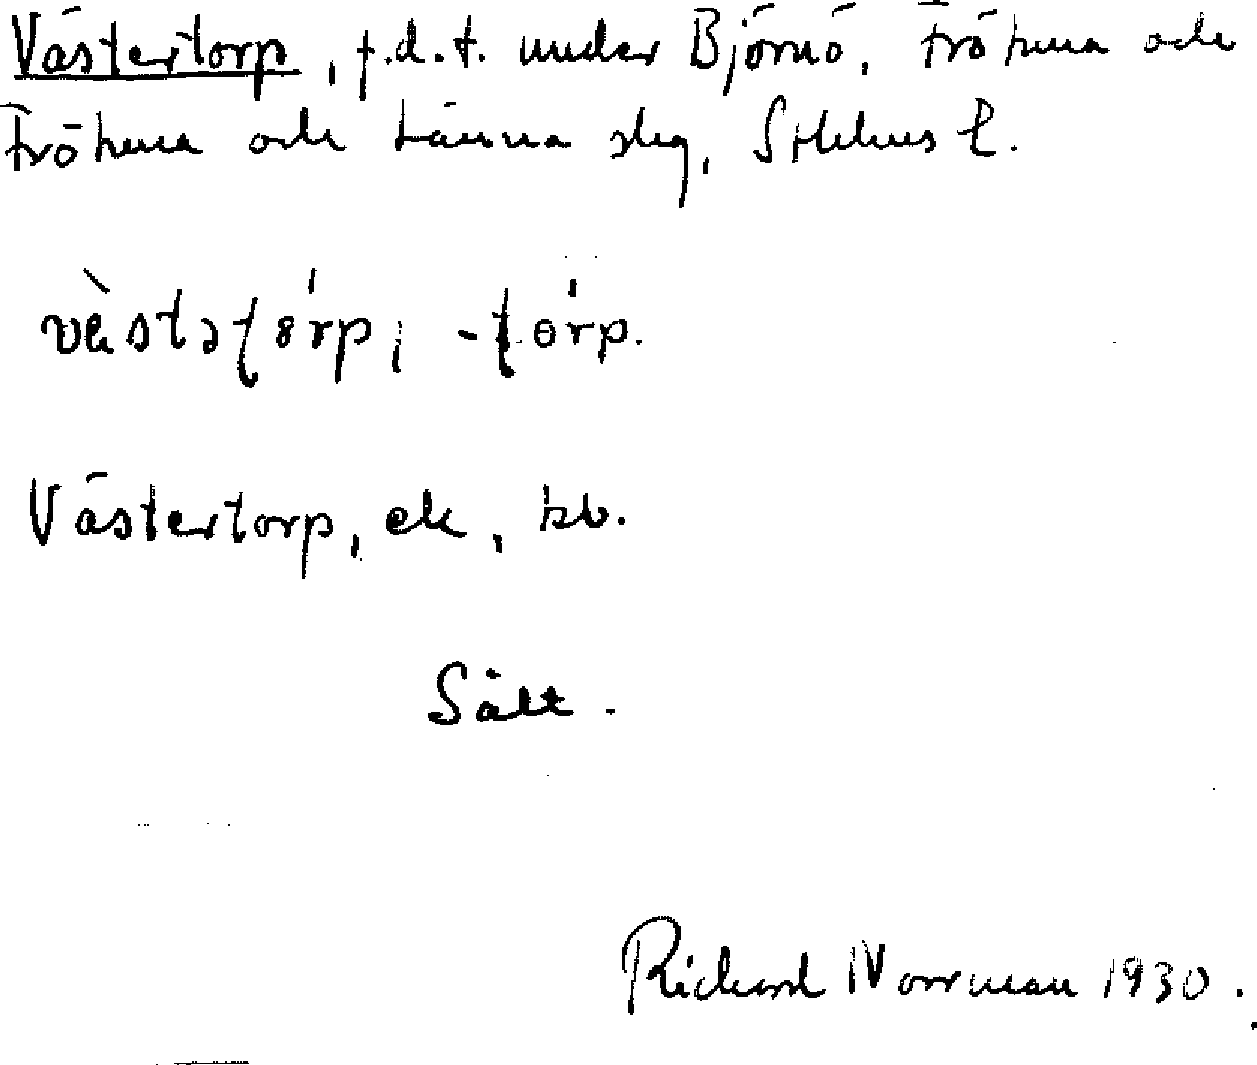 Västertorp, f.d.t. under Björnö, Frötuna och
Frötuna och Länna slg, Sthlms l.
Västertorp, ek, kb.
Richard Norrman 1930.